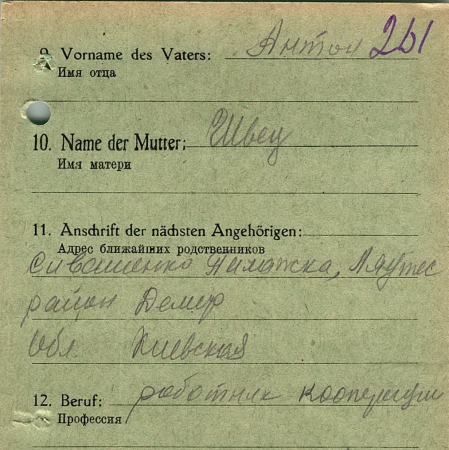 9. Vorname des Vaters: Антон 261
Имя отца
10. Name der Mutter: Швец
Имя матери
11. Anschrift der nächsten Angehörigen:
Адрес ближайших родственников
Сивашенко
район Демер
Обл Киевская
12. Beruf: работник кооперации
Профессия